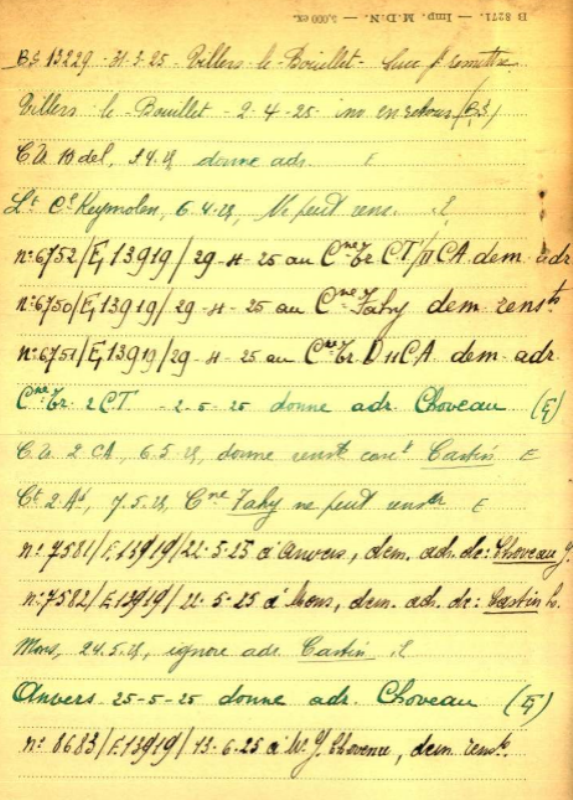 B 8271. — Imp. M.D.N. — 5.000 ex.
BS 13229 - 31-3-25 - Villers-le-Bouillet -
Villers-le-Bouillet - 2-4-25 - en retour (BS)
C.A. donne adr. E
Lt Ct Keymolen, 6.4.25, Ne peut rens. E
n° 6752/E, 13919/29-4-25 au Cne Tr CT/II CA dem. adr
n° 6750/E, 13919/29-4-25 au Cne Fahy dem. rensts.
n° 6751/E, 13919/29-4-25 au Cne Tr. D II CA dem. adr.
Cne Tr. 2 CT. - 2-5-25 donne adr. Choveau (E)
C.A. 2 CA, 6.5.25, donne rensts conct Castin E
Ct 2 Ad, 7.5.25, Cne Fahy ne peut rensts E
n° 7581/E.13919/22-5-25 à Anvers, dem. adr. de: Choveau J.
n° 7582/E.13919/22-5-25 à Mons, dem. adr. de: Castin L.
Mons, 24.5.25, ignore adr. Castin. E
Anvers 25-5-25 donne adr. Choveau (E)
n° 8683/E.13919/13-6-25 à Mr J. Choveau, dem. rensts.